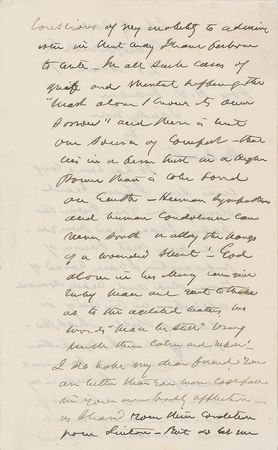 Conscious of my inability to admin
ister in that way I have forborne
to write. In all such cases of
grief and mental suffering the
"heart alone knows its own
sorrow" and there is but
one source of comfort - that
lies in a firm trust in a higher
Power than is to be found
on Earth - Human sympathies
and human condolence can
never sooth or allay the pangs
of a wounded spirit! - God
alone in his mercy can give
and rest to those
as to the waters, his
words "be still" bring
with them calm and
I do hope my dear friend you
are better than you were
in your own bodily affliction -
as I learned from
from - But do let me